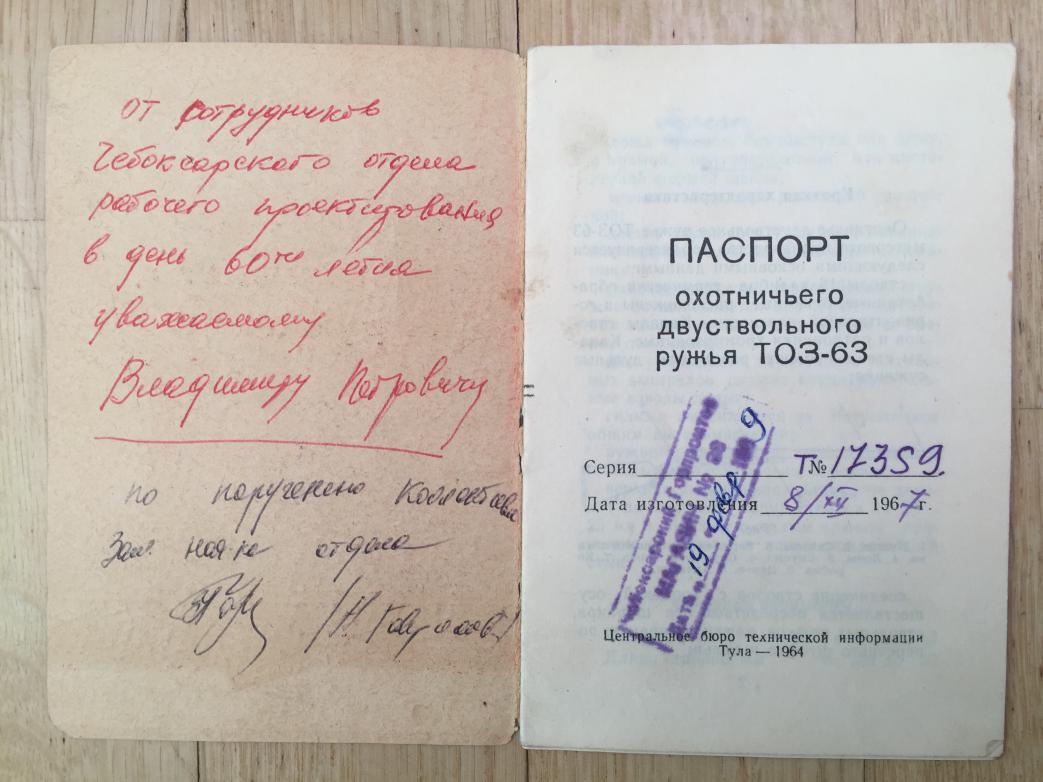 от сотрудников
Чебоксарского отдела
рабочего проектирования
в день 60ти летия
уважаемому
Владимиру Петровичу
по поручению коллектива
Зам. нач-ка отдела
ПАСПОРТ
охотничьего
двуствольного
ружья ТОЗ-63
Серия Т№ 17359.
Дата изготовления 8/XII 1967г.
Чебоксарский Горпромторг
МАГАЗИН № 28
Дата 19 февр 9
Центральное бюро технической информации
Тула — 1964